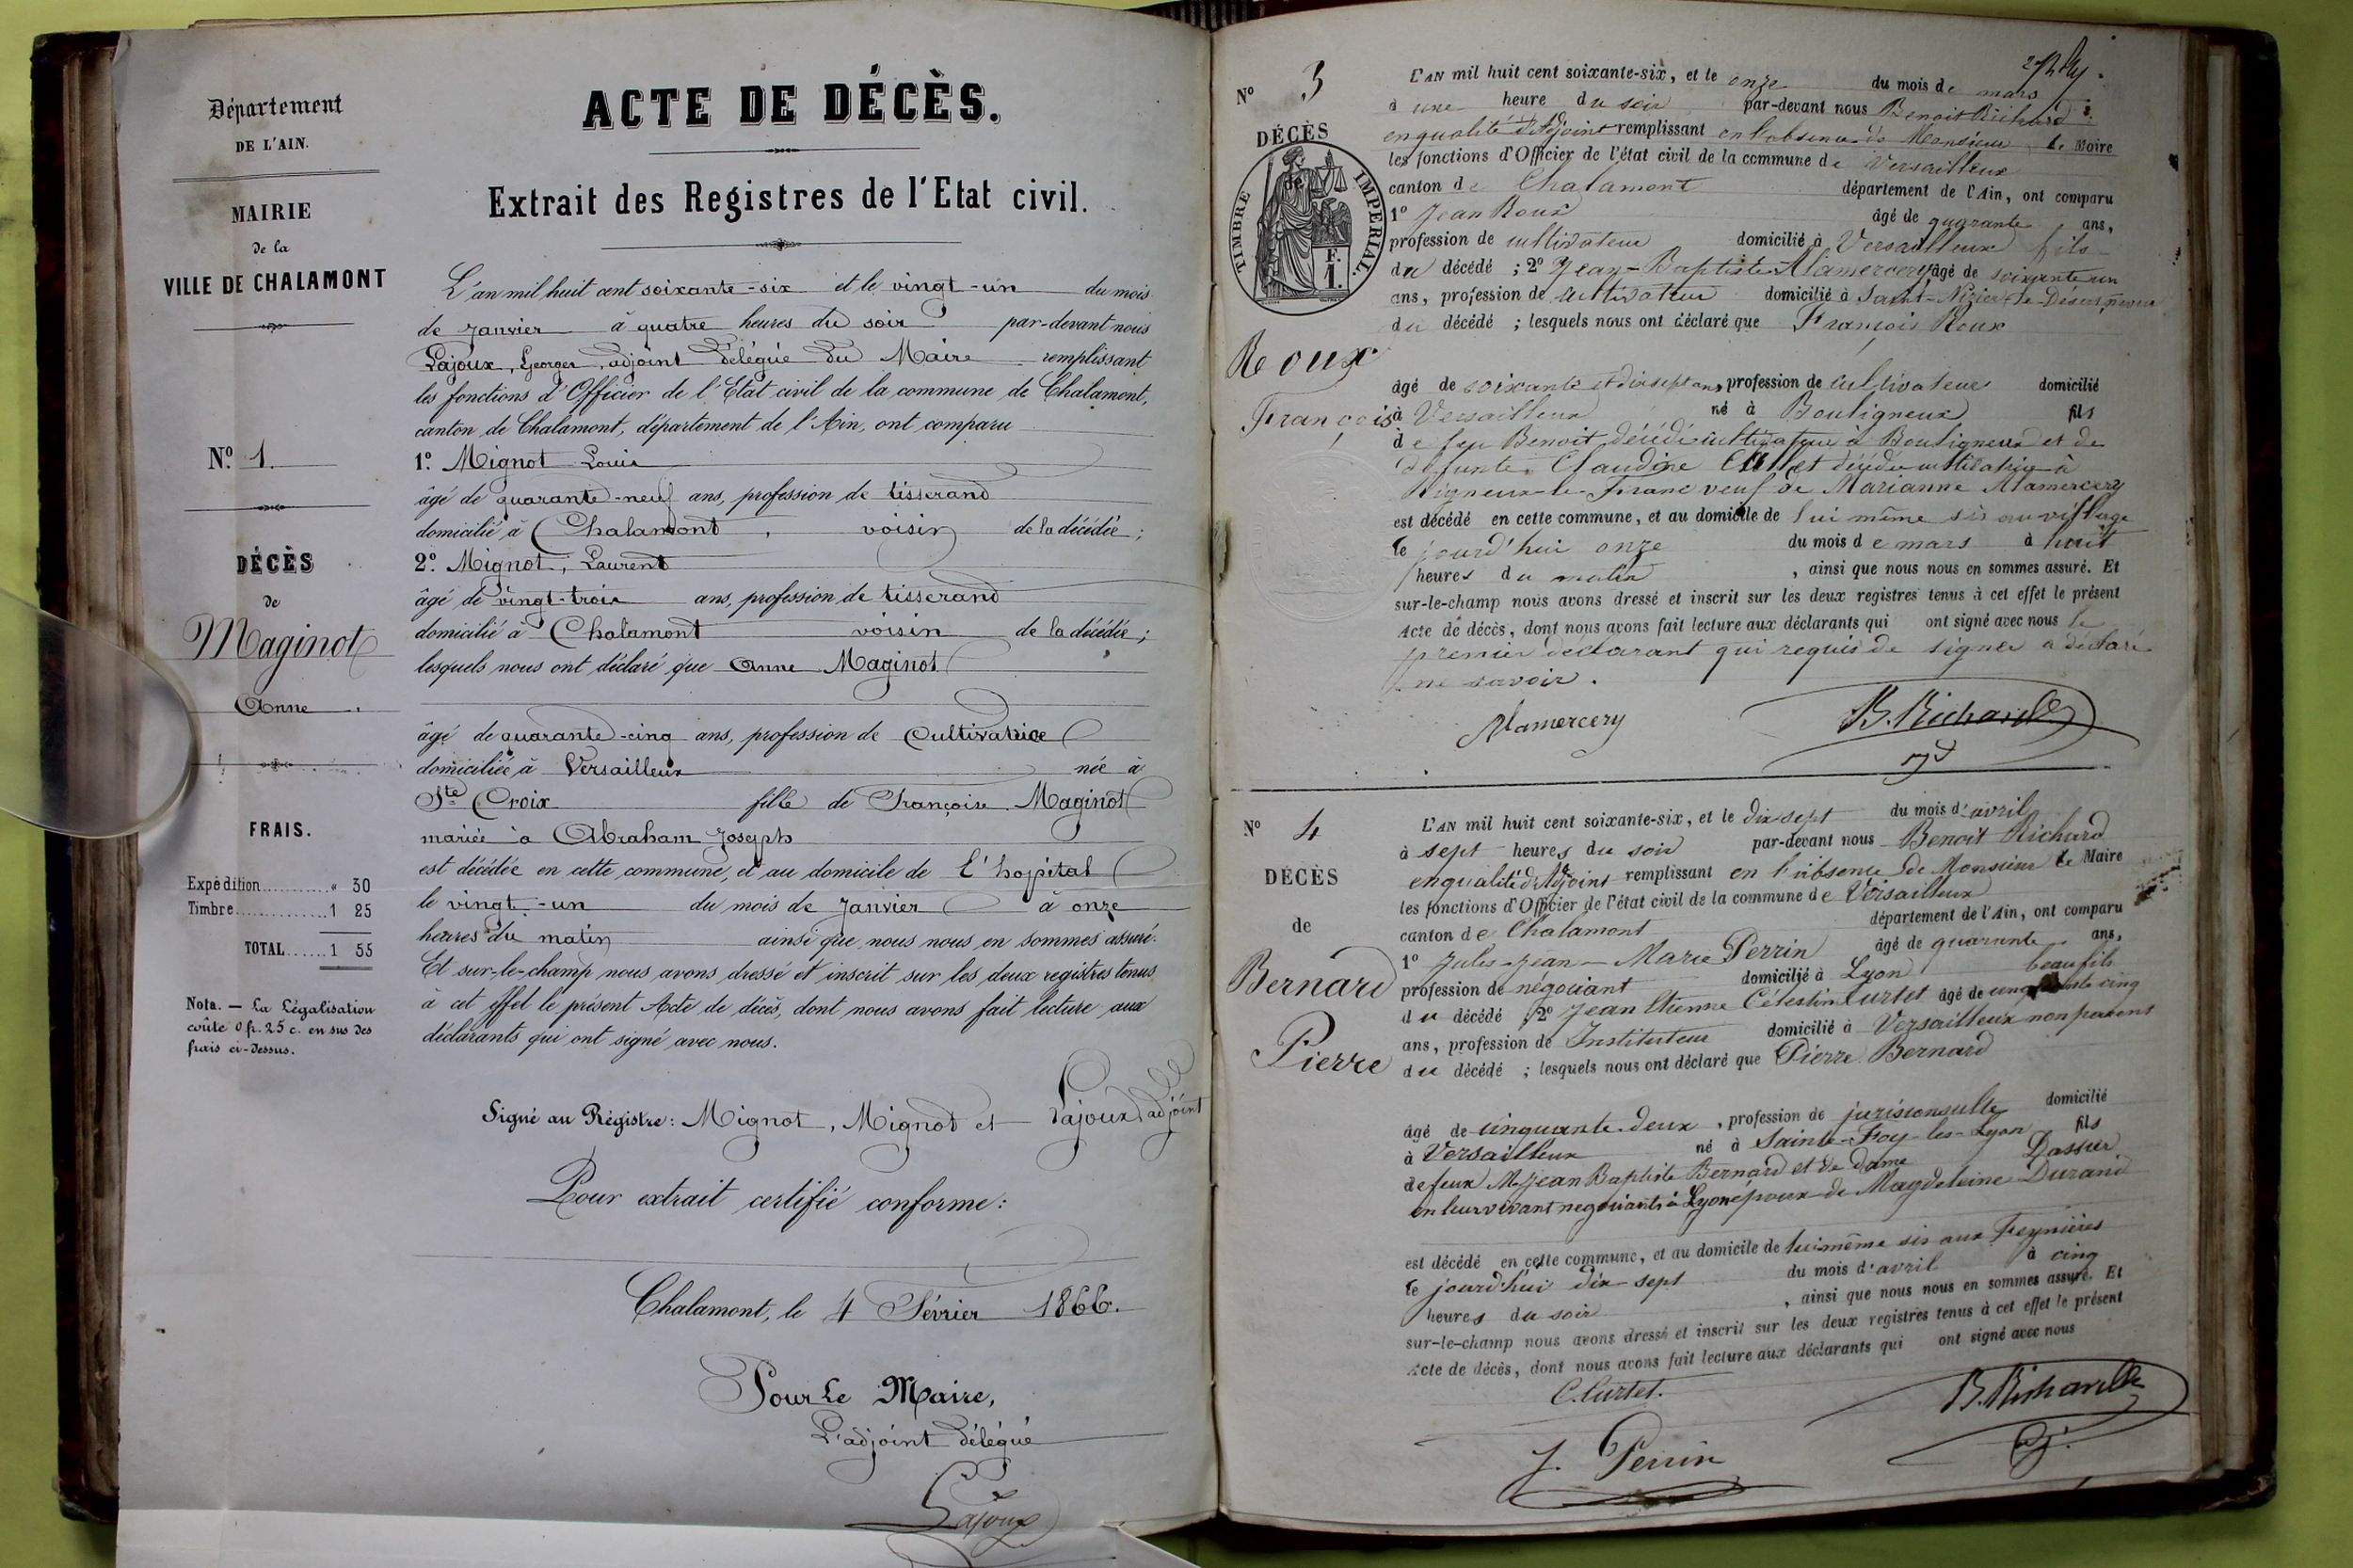 Département
DE L'AIN.
MAIRIE
de la
VILLE DE CHALAMONT
N.º 1.
DÉCÈS
de
Maginot
Anne
FRAIS.
Expédition........... " 30
Timbre.............. 1 25
TOTAL...... 1 55
Nota. — La Légalisation
coûte 0 fr. 25 c. en sus des
frais ci-dessus.
ACTE DE DÉCÈS.
Extrait des Registres de l'Etat civil.
L'an mil huit cent soixante-six et le vingt-un du mois
de Janvier à quatre heures du soir par-devant nous
Lajoux, Georges, adjoint délégué du Maire remplissant
les fonctions d'Officier de l'Etat civil de la commune de Chalamont,
canton de Chalamont, département de l'Ain, ont comparu
1º. Mignot Louis
âgé de quarante-neuf ans, profession de tisserand
domicilié à Chalamont, voisin de la décédée;
2º. Mignot, Laurent
âgé de vingt-trois ans, profession de tisserand
domicilié à Chalamont voisin de la décédée;
lesquels nous ont déclaré que Anne Maginot
âgé de quarante-cinq ans, profession de Cultivatrice
domiciliée à Versailleux née à
Ste Croix fille de Françoise Maginot
mariée à Abraham Joseph
est décédée en cette commune, et au domicile de l'hopital
le vingt-un du mois de Janvier à onze
heures du matin ainsi que nous nous en sommes assuré.
Et sur-le-champ nous avons dressé et inscrit sur les deux registres tenus
à cet effet le présent Acte de décès, dont nous avons fait lecture aux
déclarants qui ont signé avec nous.
Signé au Régistre: Mignot, Mignot et Lajoux adjoint
Pour extrait certifié conforme:
Chalamont, le 4 Février 1866.
Pour Le Maire,
L'adjoint délégué
Lajoux
Nº 3
DÉCÈS
de
TIMBRE IMPERIAL.
F.
1.
Roux
François
L'AN mil huit cent soixante-six, et le onze du mois de mars
à une heure du soir par-devant nous Benoit Richard
en qualité d'Adjoint remplissant en l'absence de Monsieur le Maire
les fonctions d'Officier de l'état civil de la commune de Versailleux
canton de Chalamont département de l'Ain, ont comparu
1º Jean Roux âgé de quarante ans,
profession de cultivateur domicilié à Versailleux fils
du décédé ; 2º Jean-Baptiste Alamercery âgé de soixante un
ans, profession de cultivateur domicilié à Saint-Nizier-le-Désert
du décédé ; lesquels nous ont déclaré que François Roux
âgé de soixante et dix sept ans, profession de cultivateur domicilié
à Versailleux né à Bouligneux fils
de feu Benoit décédé cultivateur à Bouligneux et de
défunte Claudine décédée cultivatrice à
Rigneux-le-Franc veuf de Marianne Alamercery
est décédé en cette commune, et au domicile de lui même sis au village
le jourd'hui onze du mois de mars à huit
heures du matin, ainsi que nous nous en sommes assuré. Et
sur-le-champ nous avons dressé et inscrit sur les deux registres tenus à cet effet le présent
Acte de décès, dont nous avons fait lecture aux déclarants qui ont signé avec nous le
premier déclarant qui requis de signer a déclaré
ne savoir.
Alamercery B. Richard
Nº 4
DÉCÈS
de
Bernard
Pierre
L'AN mil huit cent soixante-six, et le dix sept du mois d'avril
à sept heures du soir par-devant nous Benoit Richard
en qualité d'Adjoint remplissant en l'absence de Monsieur le Maire
les fonctions d'Officier de l'état civil de la commune de Versailleux
canton de Chalamont département de l'Ain, ont comparu
1º Jules-Jean-Marie Perrin âgé de quarante ans,
profession de négociant domicilié à Lyon beau fils
du décédé 2º Jean Etienne Célestin Curtet âgé de cinq
ans, profession de Instituteur domicilié à Versailleux non parent
du décédé ; lesquels nous ont déclaré que Pierre Bernard
âgé de cinquante-deux, profession de jurisconsulte domicilié
à Versailleux né à Sainte-Foy-les-Lyon fils
de feux M. Jean Baptiste Bernard et de dame Dassier
en leur vivant négociants à Lyon époux de Magdeleine Durand
est décédé en cette commune, et au domicile de lui même sis aux Feynières
le jourd'hui dix-sept du mois d'avril à cinq
heures du soir, ainsi que nous nous en sommes assuré. Et
sur-le-champ nous avons dressé et inscrit sur les deux registres tenus à cet effet le présent
Acte de décès, dont nous avons fait lecture aux déclarants qui ont signé avec nous
C. Curtet. B. Richard
J. Perrin